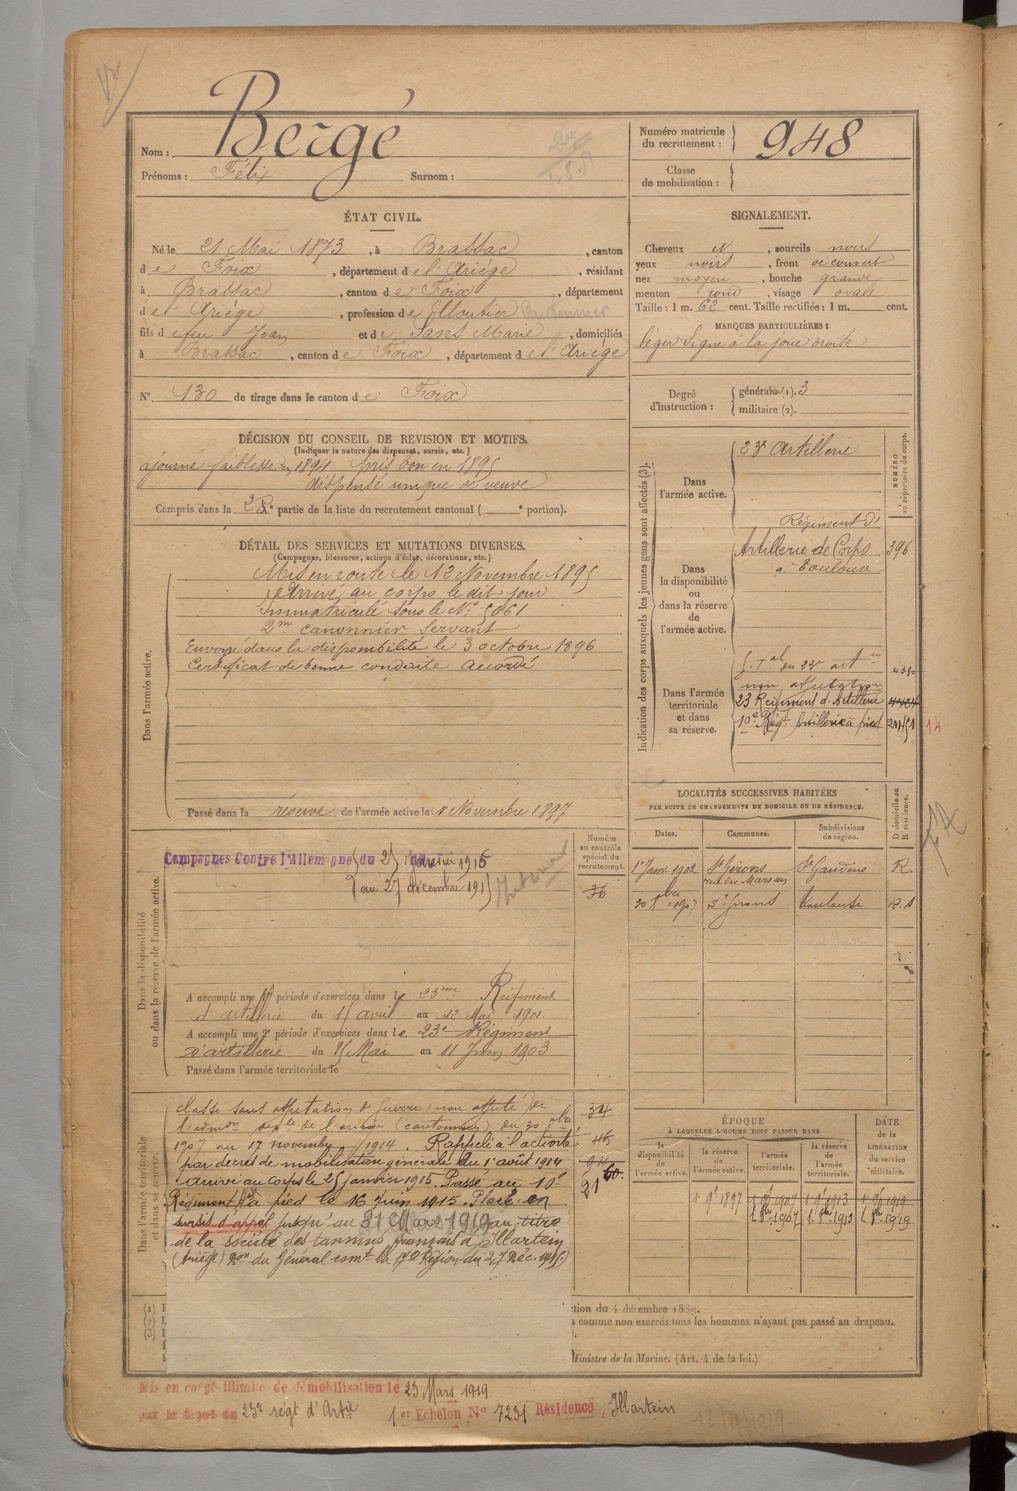 Bergé
Nom :
Prénoms : Félix Surnom :
Numéro matricule
du recrutement : 948
Classe
de mobilisation :
ÉTAT CIVIL.
Né le 21 Mai 1873, à Brassac, canton
de Foix, département de l'Ariège, résidant
à Brassac, canton de Foix, département
de l'Ariège, profession de
fils de feu Jean et de Sans Marie, domiciliés
à Brassac, canton de Foix, département de l'Ariège
N° 130 de tirage dans le canton de Foix
SIGNALEMENT.
Cheveux N, sourcils noirs
yeux noirs, front découvert
nez moyen, bouche grande
menton rond, visage ovale
Taille : 1 m. 62 cent. Taille rectifiée : 1 m. cent.
MARQUES PARTICULIÈRES :
léger signe à la joue droite
Degré
d'instruction :
générale (1). 3
militaire (2).
DÉCISION DU CONSEIL DE REVISION ET MOTIFS.
(Indiquer la nature des dispenses, sursis, etc.)
ajourné faiblesse en 1894 pris bon en 1895
dispensé unique de veuve
Compris dans la 2e partie de la liste du recrutement cantonal ( e portion).
DÉTAIL DES SERVICES ET MUTATIONS DIVERSES.
(Campagnes, blessures, actions d'éclat, décorations, etc.)
Dans l'armée active.
Mis en route le 12 Novembre 1895
Arrivé au corps le dit jour
Immatriculé sous le N° 5861
2me canonnier servant
Envoyé dans la disponibilité le 3 octobre 1896
Certificat de bonne conduite accordé
Passé dans la réserve de l'armée active le 1 Novembre 1897
Indication des corps auxquels les jeunes gens sont affectés (3).
NUMÉRO
au répertoire du corps.
Dans
l'armée active.
23e Artillerie
Dans
la disponibilité
ou
dans la réserve
de
l'armée active.
Régiment d'
Artillerie de Corps 396
à Toulouse
Dans l'armée
territoriale
et dans
sa réserve.
non affectation
23 Régiment d'Artillerie
10e Régt Artillerie à pied 14
LOCALITÉS SUCCESSIVES HABITÉES
PAR SUITE DE CHANGEMENTS DE DOMICILE OU DE RÉSIDENCE.
Dates. Communes. Subdivisions
de région.
D domicile ou
R résidence.
1er Janv. 1902 St Girons St Gaudens R
1907 St Girons Toulouse
Dans la disponibilité
ou dans la réserve de l'armée active.
Numéro
au contrôle
spécial du
recrutement.
Campagnes Contre l'Allemagne du 25 1915
au 27 décembre 1915
36
A accompli une 1re période d'exercices dans le 23me Régiment
d'artillerie du 15 avril au 12 Mai 1901
A accompli une 2e période d'exercices dans le 23e Régiment
d'artillerie du 15 Mai au 11 Juin 1903
Passé dans l'armée territoriale le
Dans l'armée territoriale
et dans sa réserve.
Classé sans affectation de Guerre (non affecté) de
1907 au 17 novembre 1914. Rappelé à l'activité
par décret de mobilisation générale du 1er août 1914
arrivé au corps le 25 janvier 1915. Passé au 10e
Régiment à pied le 16 juin 1915. Placé en
sursis d'appel jusqu'au 31 Mars 1919 au titre
de la société des tannins français à Illartein
(Ariège) Don du Général comt la 17e Région du 27 Déc. 1915
ÉPOQUE
À LAQUELLE L'HOMME DOIT PASSER DANS
DATE
de la
LIBÉRATION
du service
militaire.
la
disponibilité
de
l'armée active.
la réserve
de
l'armée active.
l'armée
territoriale.
la réserve
de
l'armée
territoriale.
1 9bre 1897 1 9bre 1907 1 9bre 1913 1 9bre 1919
tion du 4 décembre 1889.
comme non exercés tous les hommes n'ayant pas passé au drapeau.
Ministre de la Marine. (Art. 4 de la loi.)
Mis en congé illimité de démobilisation le 23 Mars 1919
par le dépôt du 23e régt d'Artie 1er Echelon N° 7231 Résidence, Illartein